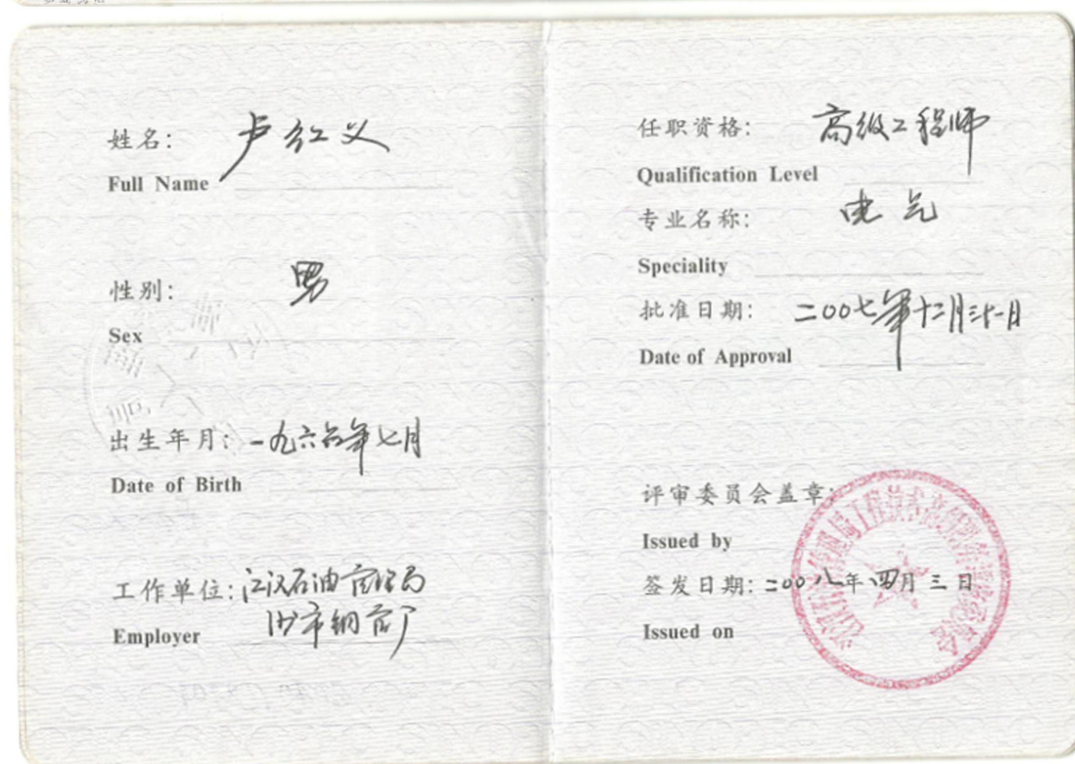 姓名: 卢红义
Full Name
性别: 男
Sex
出生年月: 一九六六年七月
Date of Birth
工作单位: 江汉石油管理局
沙市钢管厂
Employer
任职资格: 高级工程师
Qualification Level
专业名称: 电气
Speciality
批准日期: 二00七年十二月三十一日
Date of Approval
评审委员会盖章:
Issued by
签发日期: 二00八年四月三日
Issued on